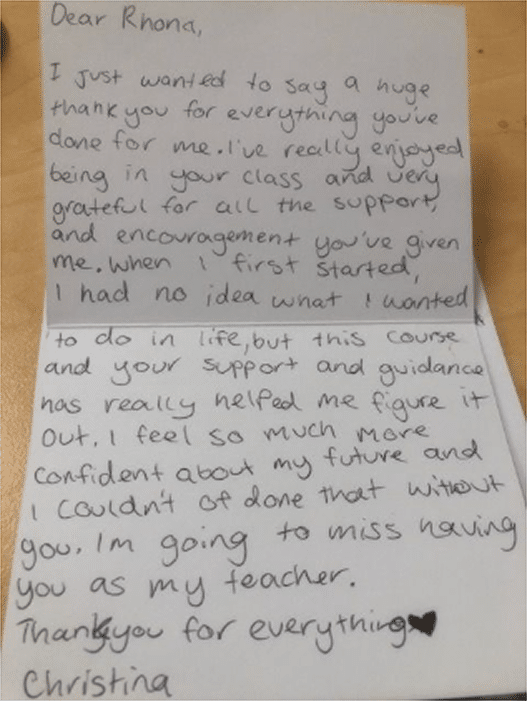 Dear Rhona,
I just wanted to say a huge
thank you for everything you've
done for me. I've really enjoyed
being in your class and very
grateful for all the support,
and encouragement you've given
me. When I first started,
I had no idea what I wanted
to do in life, but this course
and your support and guidance
has really helped me figure it
out. I feel so much more
confident about my future and
I couldn't of done that without
you. Im going to miss having
you as my teacher.
Thankyou for everything♥
Christina